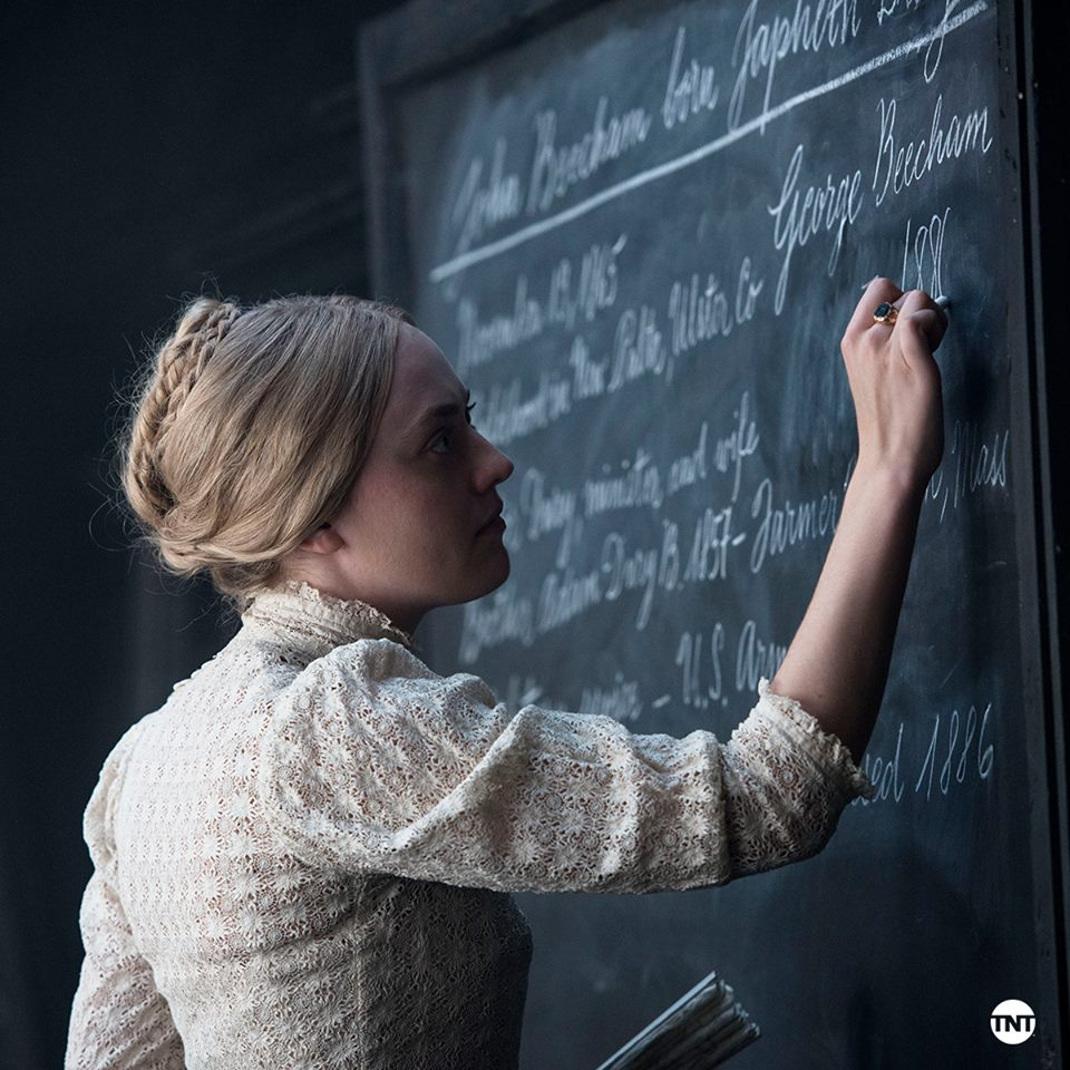 John Beecham born Japheth Dury
George Beecham
November 13, 1865
1886
New Paltz, Ulster Co
Dury, minister, and wife
Brother, Adam Dury B. 1857 - Farmer
, Mass
- U.S. Army
1886
TNT